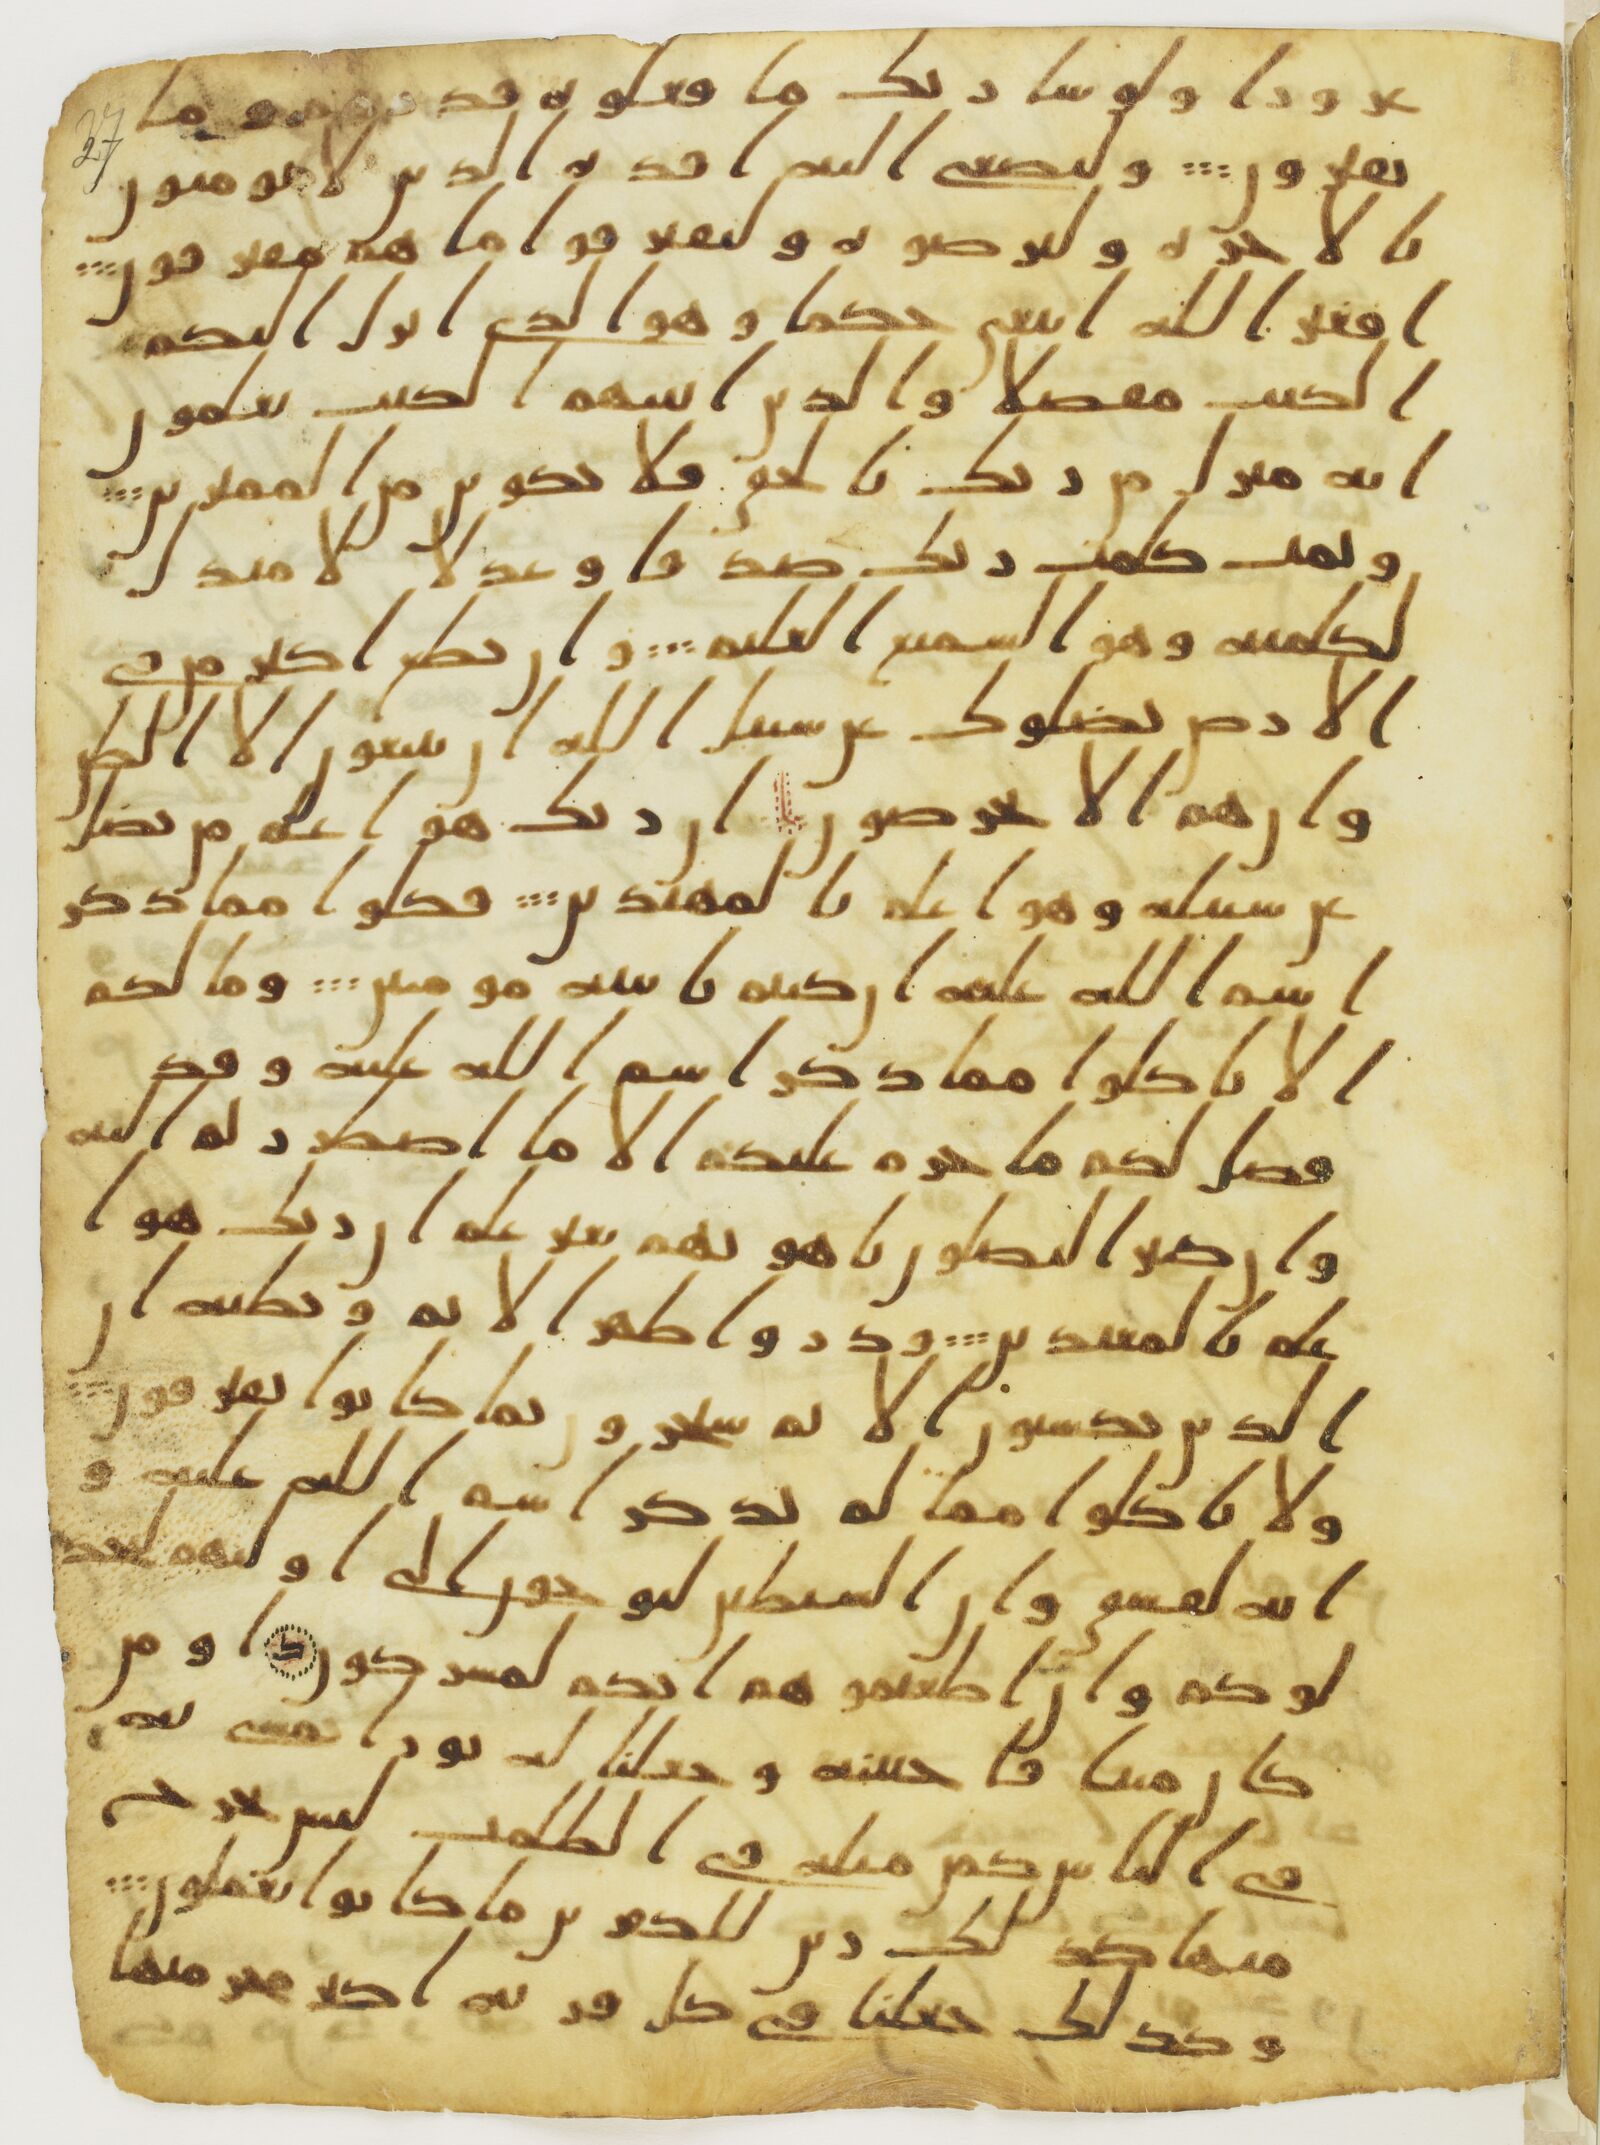 27
غرورا ولو شا ربك ما فعلوه فذرهم وما
يفترون ولتصغى اليه افده الذين لا يومنون
بالاخره وليرضوه وليقترفوا ما هم مقترفون
افغير الله ابتغي حكما وهو الذي انزل اليكم
الكتب مفصلا والذين اتينهم الكتب يعلمون
انه منزل من ربك بالحق فلا تكونن من الممترين
وتمت كلمت ربك صدقا وعدلا لا مبدل
لكلمته وهو السميع العليم وان تطع اكثر من في
الارض يضلوك عن سبيل الله ان يتبعون الا الظن
وان هم الا يخرصون ان ربك هو اعلم من يضل
عن سبيله وهو اعلم بالمهتدين فكلوا مما ذكر
اسم الله عليه ان كنتم بايته مومنين وما لكم
الا تاكلوا مما ذكر اسم الله عليه وقد
فصل لكم ما حرم عليكم الا ما اضطررتم اليه
وان كثيرا ليضلون باهوىهم بغير علم ان ربك هو ا
علم بالمعتدين وذروا ظهر الاثم وبطنه ان
الذين يكسبون الاثم سيجزون بما كانوا يقترفون
ولا تاكلوا مما لم يذكر اسم الله عليه و
انه لفسق وان الشيطين ليوحون الى اوليهم ليجد
لوكم وان اطعتموهم انكم لمشركون اومن
كان ميتا فاحيينه وجعلنا له نورا يمشي به
في الناس كمن مثله في الظلمت ليس بخرج
منها كذلك زين للكفرين ما كانوا يعملون
وكذلك جعلنا في كل قريه اكبر مجرميها